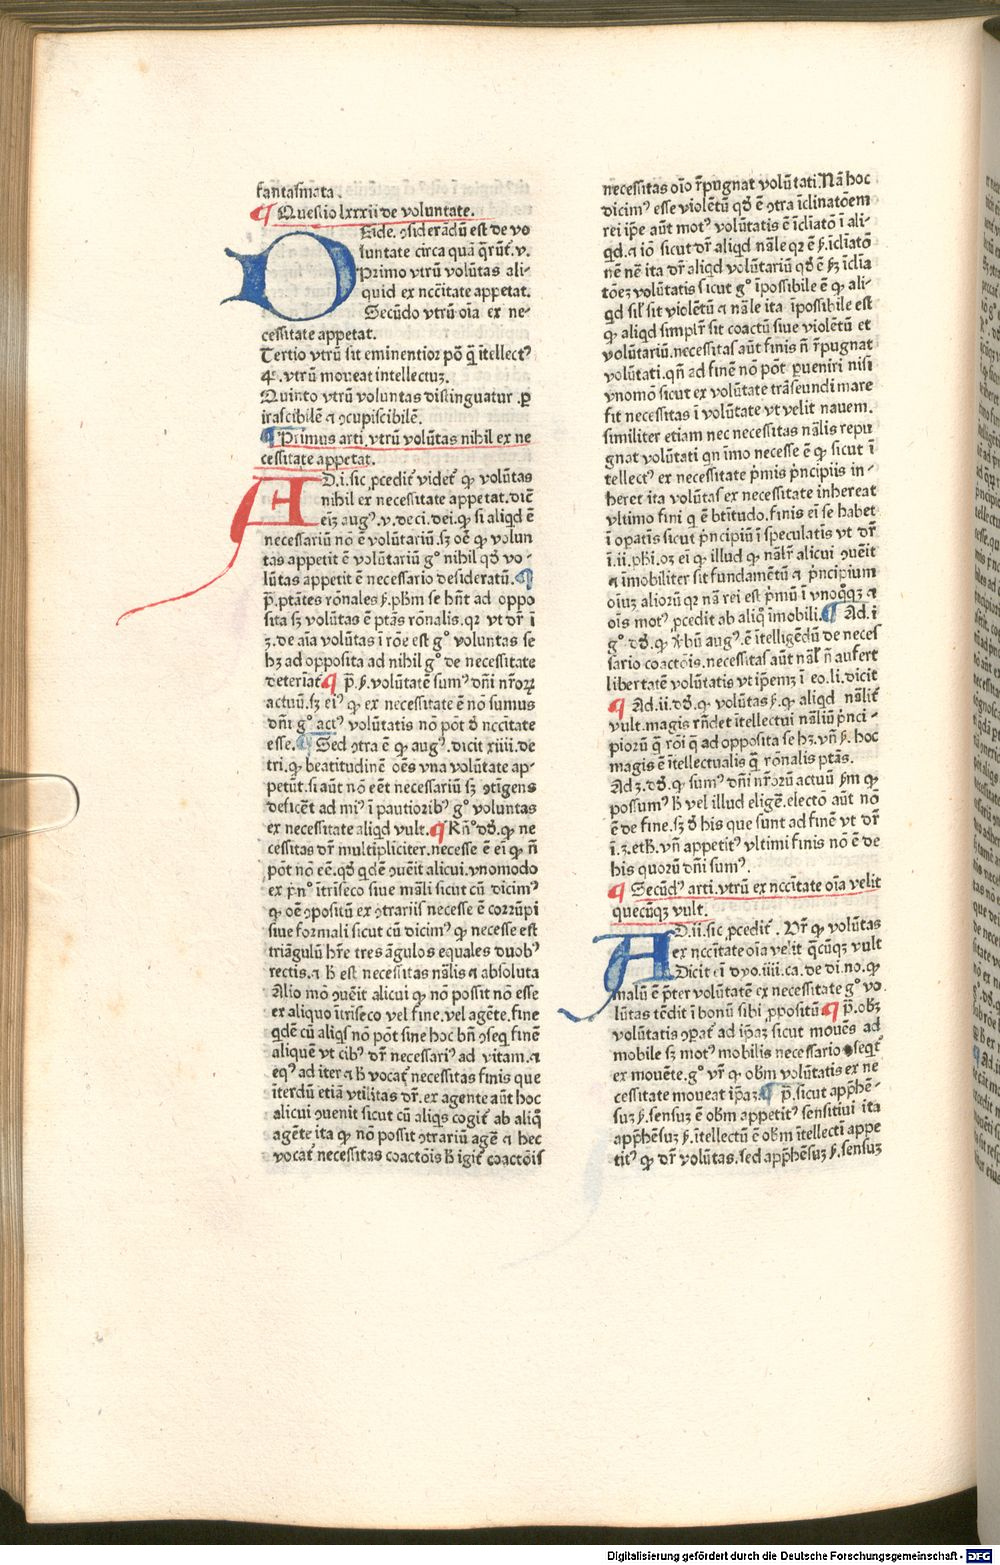 fantasmata.
¶ Questio lxxxii de voluntate.
DEide. ꝯsiderãdũ est de vo
luntate circa quã q̃rũt̃. v.
Primo vtrũ volũtas ali-
quid ex ncc̃itate appetat.
Secũdo vtrũ oĩa ex ne-
cessitate appetat.
Tertio vtrũ sit eminentior põ q̃ ĩtellectꝰ
4º. vtrũ moueat intellectuꝫ.
Quinto vtrũ voluntas distinguatur .ꝑ
irascibilẽ ⁊ ꝯcupiscibilẽ.
¶ Primus arti. vtrũ volũtas nihil ex ne
cessitate appetat.
AD .i. sic ꝓcedit̃ videt̃ ꝙ volũtas
nihil ex necessitate appetat. dic̃
eiꝫ augꝰ. v. de ci. dei. ꝙ si aliqd ẽ
necessariũ nõ ẽ volũtariũ. sꝫ oẽ ꝙ volun
tas appetit ẽ volũtariũ gº nihil qð vo-
lũtas appetit ẽ necessario desideratũ. ¶
p̃. ptãtes rõnales ẜ. pħm se hñt ad oppo
sita sꝫ volũtas ẽ ptãs rõnalis. qꝛ vt dr̃ ĩ
ꝫ. de aĩa volũtas ĩ rõe est gº voluntas se
hꝫ ad opposita ad nihil gº de necessitate
determat̃ ¶ p̃. ẜ. volũtatẽ sumꝰ dñi nr̃oꝝ
actuũ. sꝫ eiꝰ ꝙ ex necessitate ẽ nõ sumus
dñi gº actꝰ voluntatis nõ põt ð ncc̃itate
esse. ¶ Sed ꝯtra ẽ ꝙ augꝰ. dicit xiiii. de
tri. ꝙ beatitudinẽ oẽs vna volũtate ap-
petũt. si aũt nõ eẽt necessariũ sꝫ ꝯtigens
deficẽt ad miꝰ ĩ pautioribꝰ gº voluntas
ex necessitate aliqd vult. ¶ Rñº dð. ꝙ ne
cessitas dr̃ multipliciter. necesse ẽ eĩ ꝙ ñ
põt nõ eẽ. qð qdẽ ꝯuẽit alicui. vnomodo
ex p̃nº ĩtriseco siue mãli sicut cũ dicimꝰ
ꝙ oẽ ꝯpositũ ex ꝯtrariis necesse ẽ corrũpi
siue formali sicut cũ dicimꝰ ꝙ necesse est
triãgulũ hr̃e tres ãgulos equales duobꝰ
rectis. ⁊ ħ est necessitas nãlis ⁊ absoluta
Alio mõ ꝯuẽit alicui ꝙ nõ possit nõ esse
ex aliquo ĩtriseco vel fine. vel agẽte. fine
qdẽ cũ aliqs nõ põt sine hoc bñ ꝯseq finẽ
aliquẽ vt cibꝰ dr̃ necessariꝰ ad vitam. ⁊
eqꝰ ad iter ⁊ ħ vocat̃ necessitas finis que
ĩterdũ etiã vtilitas dr̃. ex agente aũt hoc
alicui ꝯuenit sicut cũ aliqs cogit̃ ab aliq̃
agẽte ita ꝙ nõ possit ꝯtrariũ agẽ ⁊ hec
vocat̃ necessitas coactõis ħ igit̃ coactõis
necessitas oĩo r̃pugnat volũtati. Nã hoc
dicimꝰ esse violẽtũ qð ẽ ꝯtra ĩclinatõem
rei ip̃e aũt motꝰ volũtatis ẽ ĩcliatõ ĩ ali-
qd. ⁊ iõ sicut dr̃ aliqd nãle qꝛ ẽ ẜ. icliatõ
nẽ nẽ ita dr̃ aliqd volũtariũ qð ẽ ẜꝫ ĩclia
tõeꝫ volũtatis sicut gº ĩpossibile ẽ ꝙ ali-
qd sil̃ sit violẽtũ ⁊ nãle ita ĩpossibile est
ꝙ aliqd simplr̃ sit coactũ siue violẽtũ et
volũtariũ. necessitas aũt finis ñ r̃pugnat
volũtati. qñ ad finẽ nõ põt ꝑueniri nisi
vnomõ sicut ex volũtate trãseundi mare
fit necessitas ĩ volũtate vt velit nauem.
similiter etiam nec necessitas nãlis repu
gnat volũtati qn imo necesse ẽ ꝙ sicut ĩ
tellectꝰ ex necessitate p̃mis p̃ncipiis in-
heret ita volũtas ex necessitate inhereat
vltimo fini q ẽ btitudo. finis eĩ se habet
ĩ oꝑatis sicut p̃ncipiũ ĩ speculatis vt dr̃
ĩ. ii. phi. oꝫ eĩ ꝙ illud ꝙ nãlr̃ alicui ꝯuẽit
⁊ ĩmobiliter sit fundamẽtũ ⁊ p̃ncipium
oĩuꝫ alioꝝ qꝛ nã rei est p̃mũ ĩ vnoq̃qꝫ ⁊
oĩs motꝰ ꝓcedit ab aliqº ĩmobili. ¶ Ad. ĩ
gº dð. ꝙ ẜbũ augꝰ. ẽ ĩtelligẽdũ de neces
sario coactõis. necessitas aũt nãl̃ ñ aufert
libertatẽ volũtatis vt ip̃emꝫ ĩ eo. li. dicit
¶ Ad. ii. dð. ꝙ volũtas ẜ. ꝙ aliqd nãlit̃
vult. magis rñdet ĩtellectui nãliũ p̃nci-
pioꝝ q̃ rõi q̃ ad opposita se hꝫ. vñ ẜ. hoc
magis ẽ ĩtellectualis q̃ rõnalis ptãs.
Ad ꝫ. dð. ꝙ sumꝰ dñi nr̃oꝝ actuũ ẜm ꝙ
possumꝰ ħ vel illud eligẽ. electõ aũt nõ
ẽ de fine. sꝫ ð his que sunt ad finẽ vt dr̃
ĩ. ꝫ. etħ. vñ appetitꝰ vltimi finis nõ ẽ de
his quorũ dñi sumꝰ.
¶ Secũdꝰ arti. vtrũ ex ncc̃itate oĩa velit
quecũqꝫ vult.
AD. ii. sic ꝓcedit̃. Vr̃ ꝙ volũtas
ex ncc̃itate oĩa velit q̃cũqꝫ vult
Dicit eĩ dyo. iiii. ca. de di. no. ꝙ
malũ ẽ p̃ter volũtatẽ ex necessitate gº vo
lũtas tẽdit ĩ bonũ sibi ꝓpositũ ¶ p̃. obꝫ
volũtatis ꝯꝑat̃ ad ip̃aꝫ sicut mouẽs ad
mobile sꝫ motꝰ mobilis necessario ꝯseqt̃
ex mouẽte. gº vr̃ ꝙ obm volũtatis ex ne
cessitate moueat ip̃aꝫ. ¶ p̃. sicut appħẽ-
suꝫ ẜ. sensuꝫ ẽ obm appetitꝰ sensitiui ita
appħẽsuꝫ ẜ. ĩtellectũ ẽ obm ĩtellecti appe
titꝰ ꝙ dr̃ volũtas. sed appħẽsuꝫ ẜ. sensuꝫ
Digitalisierung gefördert durch die Deutsche Forschungsgemeinschaft - DFG